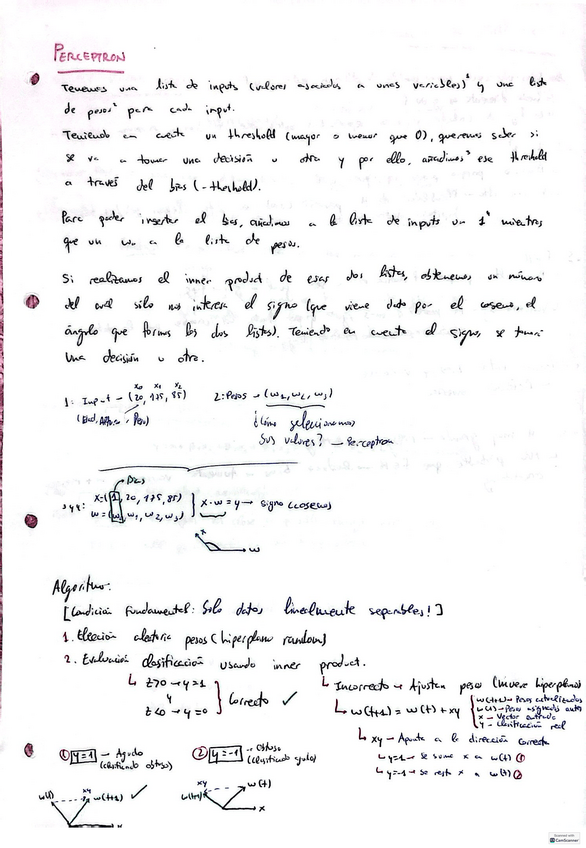 PERCEPTRON
Tenemos una lista de inputs (valores asociados a unas variables)¹ y una lista
de pesos² para cada input.
Teniendo en cuenta un threshold (mayor o menor que 0), queremos saber si
se va a tomar una decisión u otra y por ello, añadimos³ ese threshold
a través del bias (-threshold).
Para poder insertar el bias, añadimos a la lista de inputs un 1⁴ mientras
que un w₀ a la lista de pesos.
Si realizamos el inner product de esas dos listas, obtenemos un número
del cual sólo nos interesa el signo (que viene dado por el coseno, el
ángulo que forman las dos listas). Teniendo en cuenta el signo, se toma
una decisión u otra.
x₀ x₁ x₂
1: Input → (20, 175, 85) 2: Pesos → (w₁, w₂, w₃)
(Edad, Altura, Peso) ¿Cómo seleccionamos
sus valores? → Perceptron
Bias
3 y 4: x=(1, 20, 175, 85) } x·w = y → signo (coseno)
w=(w₀, w₁, w₂, w₃)
x
w
Algoritmo:
[Condición Fundamental: Solo datos linealmente separables!]
1. Elección aleatoria pesos (hiperplano random)
2. Evaluación clasificación usando inner product.
z>0 → y=1
y
z<0 → y=0
Correcto ✓
Incorrecto → Ajustan pesos (mueve hiperplano)
w(t+1) = w(t) + xy
w(t+1) → Pesos actualizados
w(t) → Pesos asignados antes
x → Vector entrada
y → Clasificación real
xy → Apunta a la dirección correcta
y=1 → se suma x a w(t) ①
y=-1 → se resta x a w(t) ②
① y=1 → Agudo
(clasificando obtuso)
② y=-1 → Obtuso
(clasificando agudo)
w(t) xy w(t+1) ✓
x
xy w(t)
w(t+1) x
Scanned with
CamScanner